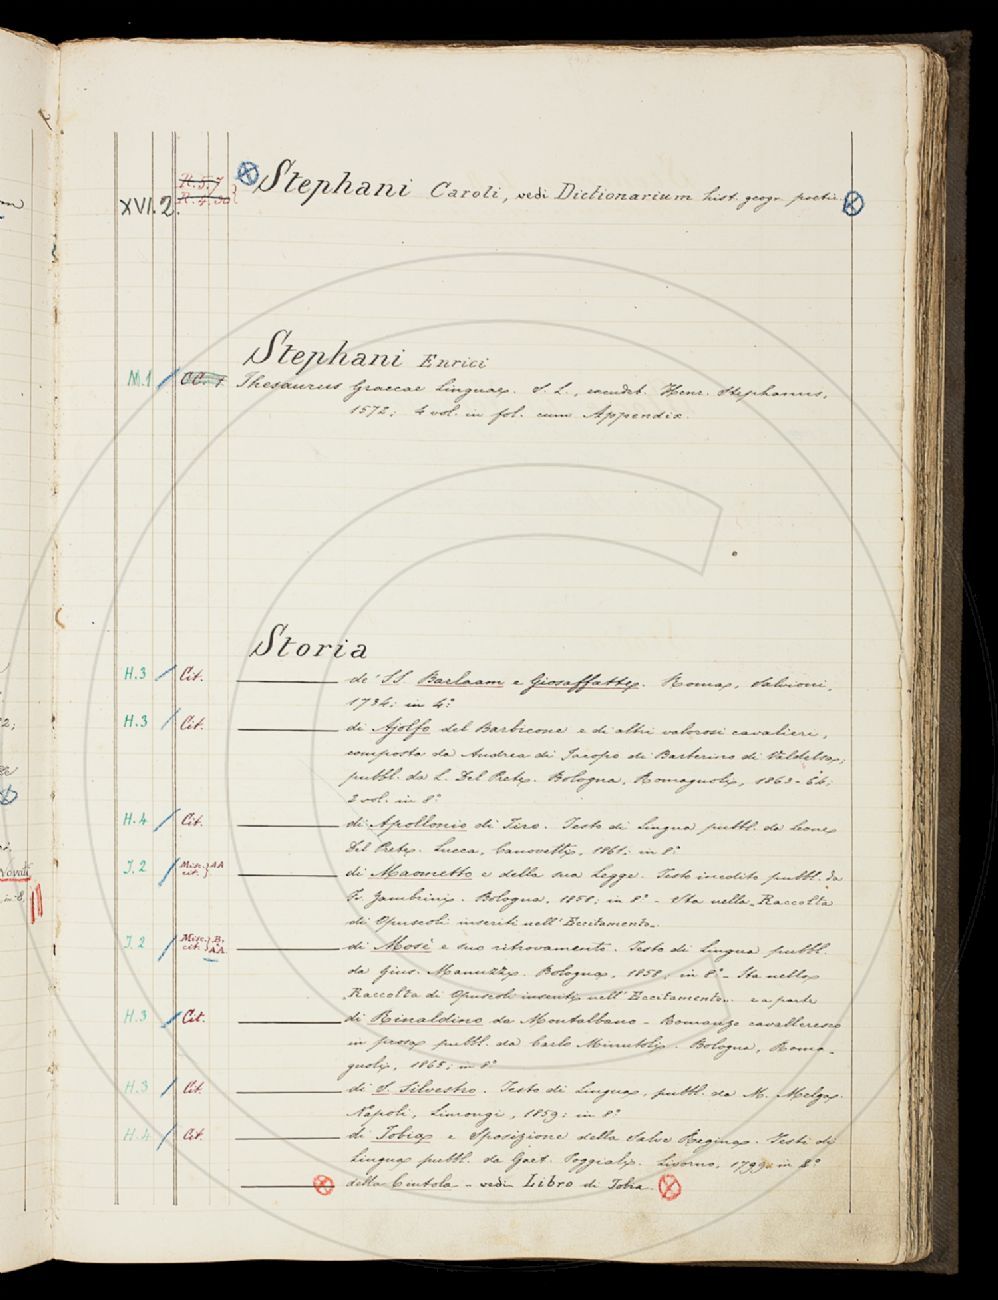 XVI.2. R.5.7 Stephani Caroli, vedi Dictionarium hist. geogr. poetic.
Stephani Enrici
M.1 CC. 7 Thesaurus Graecae Linguae. S. L., excudit Henr. Stephanus,
1572; 4 vol. in fol. cum Appendix.
Storia
H.3 Cit. de' SS. Barlaam e Giosaffatte. Roma, Salvioni,
1734; in 4º
H.3 Cit. di Ajolfo del Barbicone e di altri valorosi cavalieri,
composta da Andrea di Jacopo di Barberino di Valdelsa;
pubbl. da L. Del Prete. Bologna, Romagnoli, 1863-64;
2 vol. in 8º
H.4 Cit. di Apollonio di Tiro. Testo di Lingua pubbl. da Leone
Del Prete. Lucca, Canovetti, 1861; in 8º
J.2 Misc. AA cit. di Maometto e della sua Legge. Testo inedito pubbl. da
Fr. Zambrini. Bologna, 1858; in 8º - Sta nella Raccolta
di Opuscoli inseriti nell'Eccitamento.
J.2 Misc. B. cit. AA di Mosè e suo ritrovamento. Testo di Lingua pubbl.
da Gius. Manuzzi. Bologna, 1858, in 8º - Sta nella
Raccolta di Opuscoli inseriti nell'Eccitamento. e a parte
H.3 Cit. di Rinaldino da Montalbano - Romanzo cavalleresco
in prosa pubbl. da Carlo Minutoli. Bologna, Roma-
gnoli, 1865; in 8º
H.3 Cit. di S. Silvestro. Testo di Lingua, pubbl. da M. Melga.
Napoli, Limongi, 1859; in 8º
H.4 Cit. di Tobia e Sposizione della Salve Regina. Testi di
Lingua pubbl. da Gaet. Poggiali. Livorno, 1799; in 8º
della - vedi Libro di Tobia.
Novati
in 8,